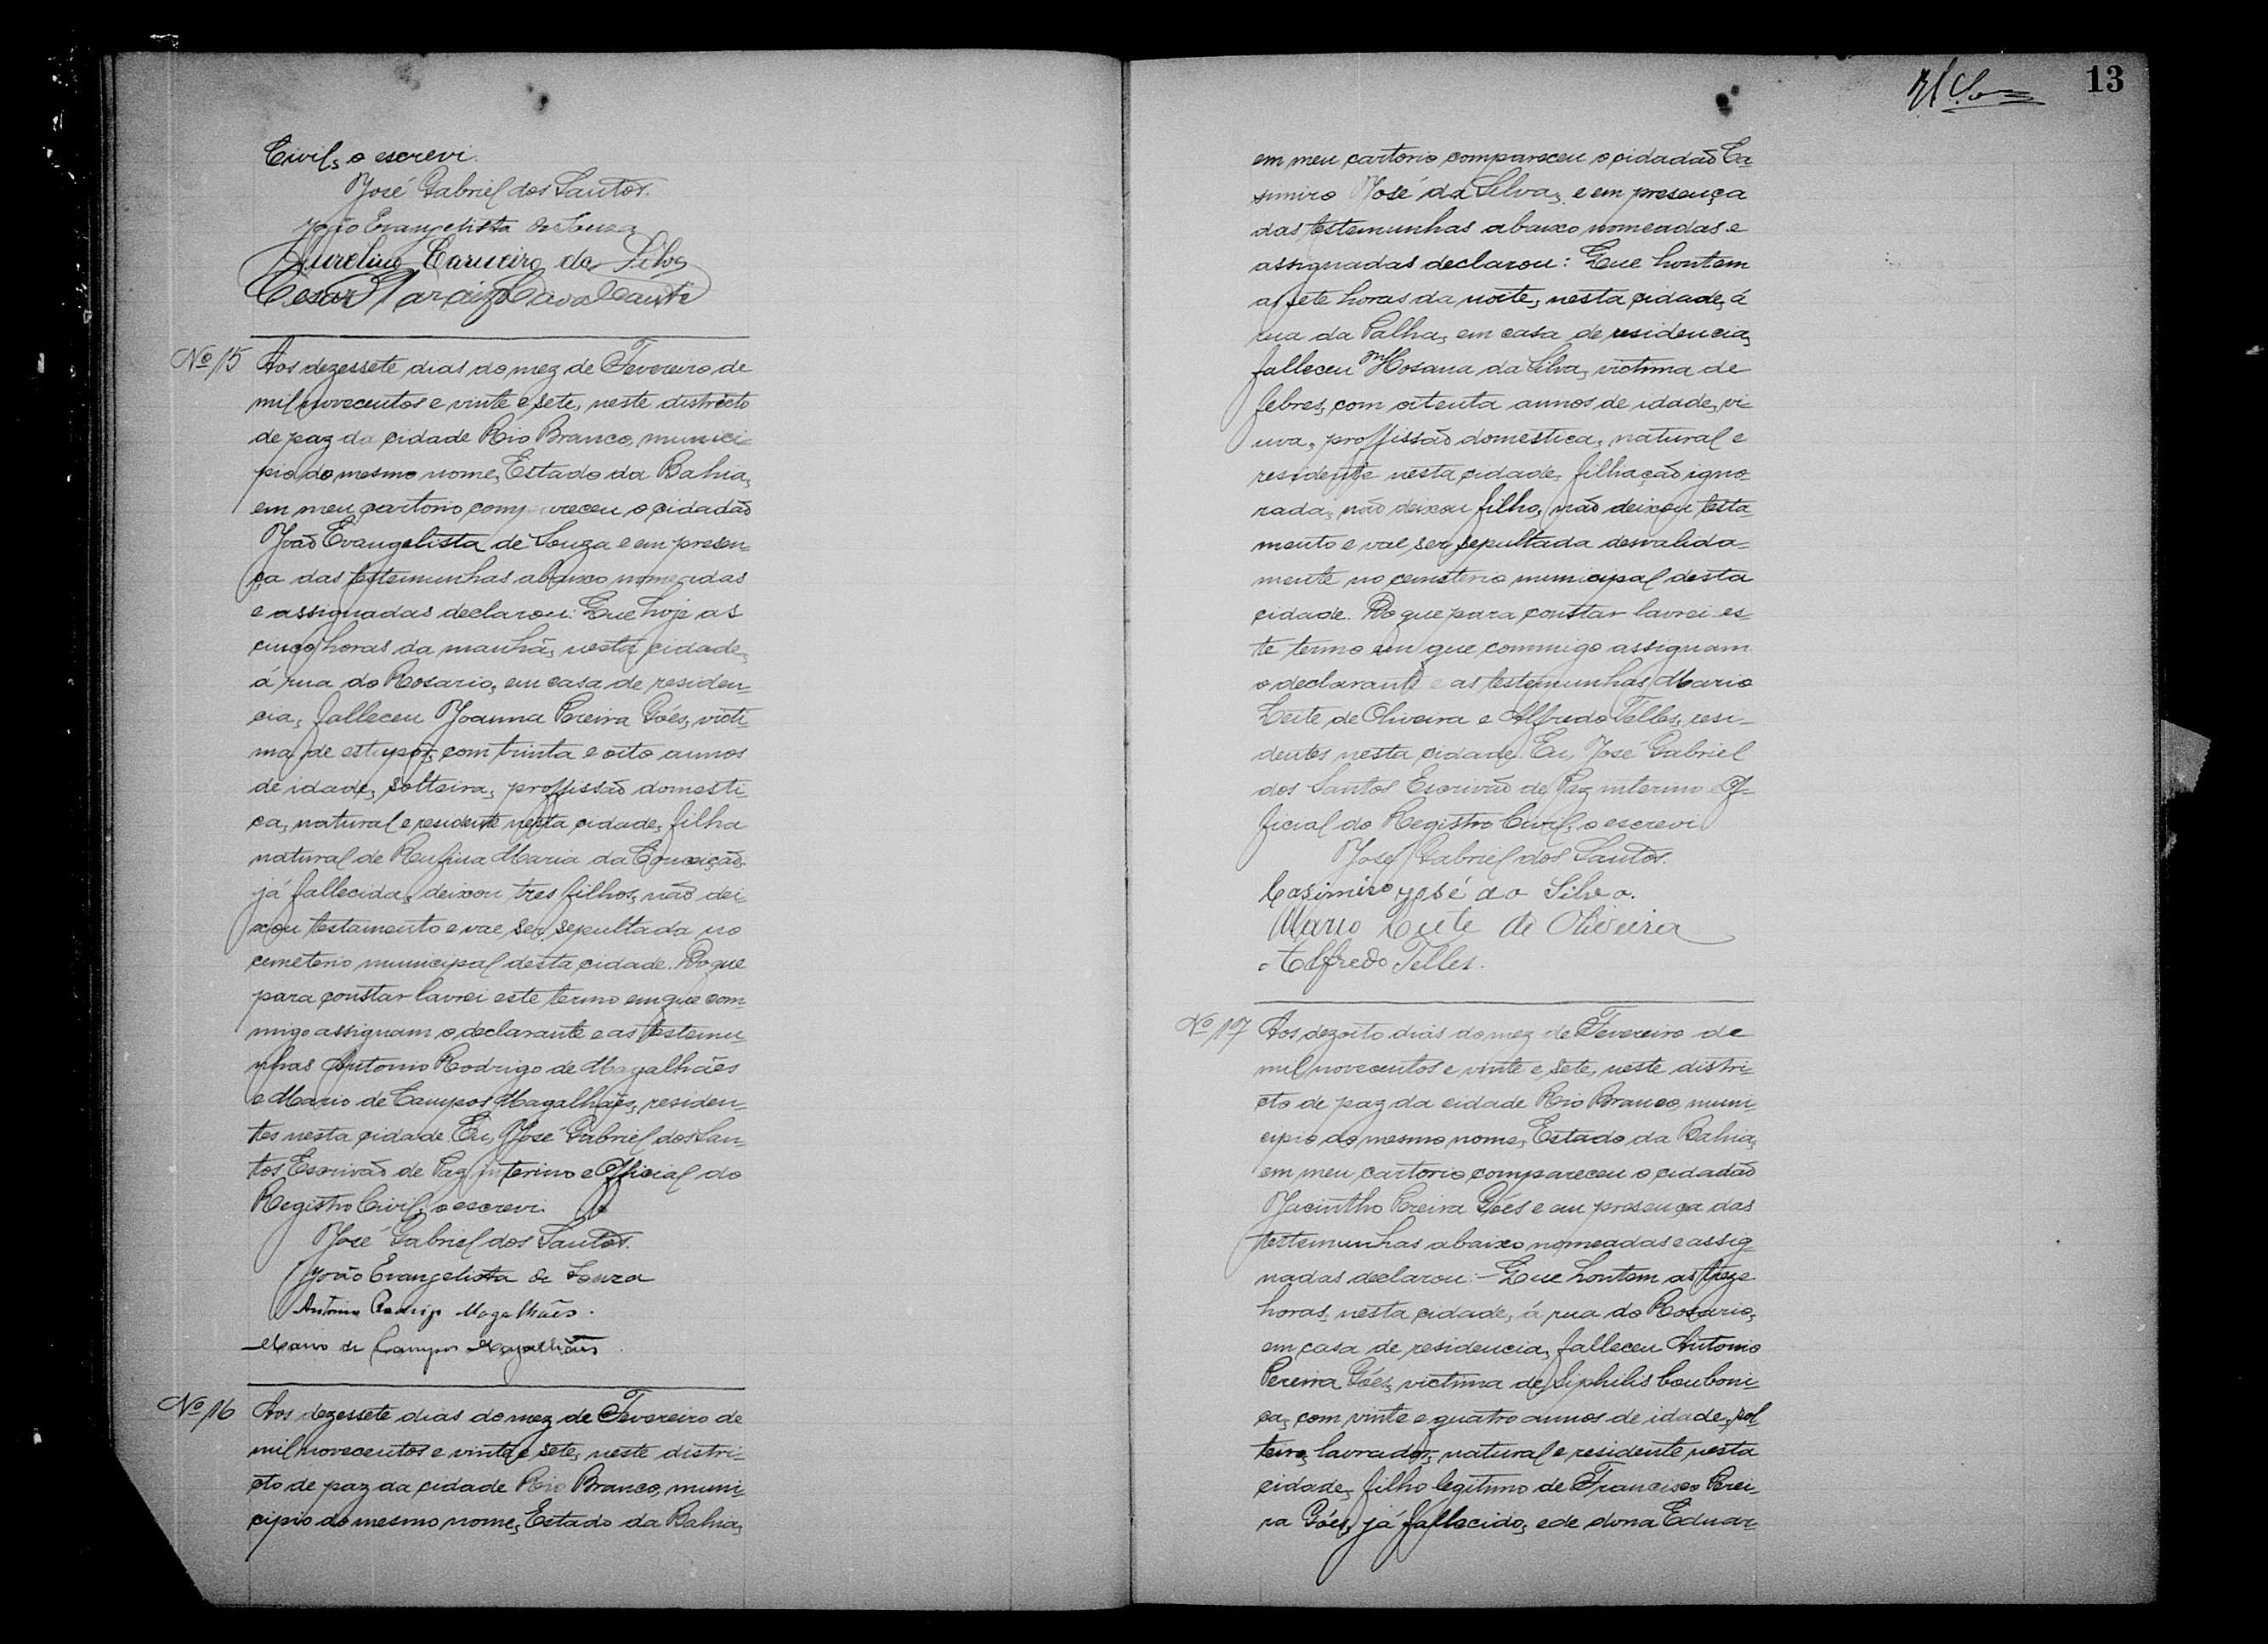 Civil, o escrevi.
José Gabriel dos Santos.
João Evangelista de Souza
Aurelino Carneiro da Silva
Cesar Cavalcante
Nº 15 Aos dezessete dias do mez de Fevereiro de
mil novecentos e vinte e sete, neste districto
de paz da cidade Rio Branco, munici-
pio do mesmo nome, Estado da Bahia,
em meu cartorio compareceu o cidadão
João Evangelista de Souza e em presen-
ça das testemunhas abaixo nomeadas
e assignadas declarou: Que hoje as
cinco horas da manhã, nesta cidade,
á rua do Rosario, em casa de residen-
cia, falleceu Joanna Pereira Góes, victi-
ma de estupor, com trinta e oito annos
de idade, solteira, proffissão domesti-
ca, natural e residente nesta cidade, filha
natural de Rufina Maria da Conceição,
já fallecida, deixou tres filhos, não dei-
xou testamento e vae ser sepultada no
cemeterio municipal desta cidade. Do que
para constar lavrei este termo em que com-
migo assignam o declarante e as testemu-
nhas Antonio Rodrigo de Magalhães
e Mario de Campos Magalhães, residen-
tes nesta cidade. Eu, José Gabriel dos San-
tos Escrivão de Paz interino e Official do
Registro Civil, o escrevi.
José Gabriel dos Santos.
João Evangelista de Souza
Antonio Rodrigo Magalhães.
Mario de Campos Magalhães
Nº 16 Aos dezessete dias do mez de Fevereiro de
mil novecentos e vinte e sete, neste distri-
cto de paz da cidade Rio Branco, muni-
cipio do mesmo nome, Estado da Bahia,
13
em meu cartorio compareceu o cidadão Ca-
simiro José da Silva, e em presença
das testemunhas abaixo nomeadas e
assignadas declarou: Que hontem
as sete horas da noite, nesta cidade, á
rua da Palha, em casa de residencia,
falleceu Hosana da Silva, victima de
febres, com oitenta annos de idade, vi-
uva, proffissão domestica, natural e
residente nesta cidade, filhação igno-
rada, não deixou filho, não deixou testa-
mento e vae ser sepultada desvalida-
mente no cemeterio municipal desta
cidade. Do que para constar lavrei es-
te termo em que commigo assignam
o declarante e as testemunhas Mario
Leite de Oliveira e Alfredo Telles, resi-
dentes nesta cidade. Eu, José Gabriel
dos Santos Escrivão de Paz interino Of-
ficial do Registro Civil, o escrevi.
José Gabriel dos Santos.
Casimiro José da Silva.
Mario Leite de Oliveira
Alfredo Telles.
Nº 17 Aos dezoito dias do mez de Fevereiro de
mil novecentos e vinte e sete, neste distri-
cto de paz da cidade Rio Branco, muni-
cipio do mesmo nome, Estado da Bahia,
em meu cartorio compareceu o cidadão
Jacintho Pereira Góes e em presença das
testemunhas abaixo nomeadas e assig-
nadas declarou:- Que hontem as treze
horas, nesta cidade, á rua do Rosario,
em casa de residencia, falleceu Antonio
Pereira Góes, victima de Siphilis bouboni-
ca, com vinte e quatro annos de idade, sol-
teiro, lavrador, natural e residente nesta
cidade, filho legitimo de Francisco Perei-
ra Góes, já fallecido, e de dona Eduar-